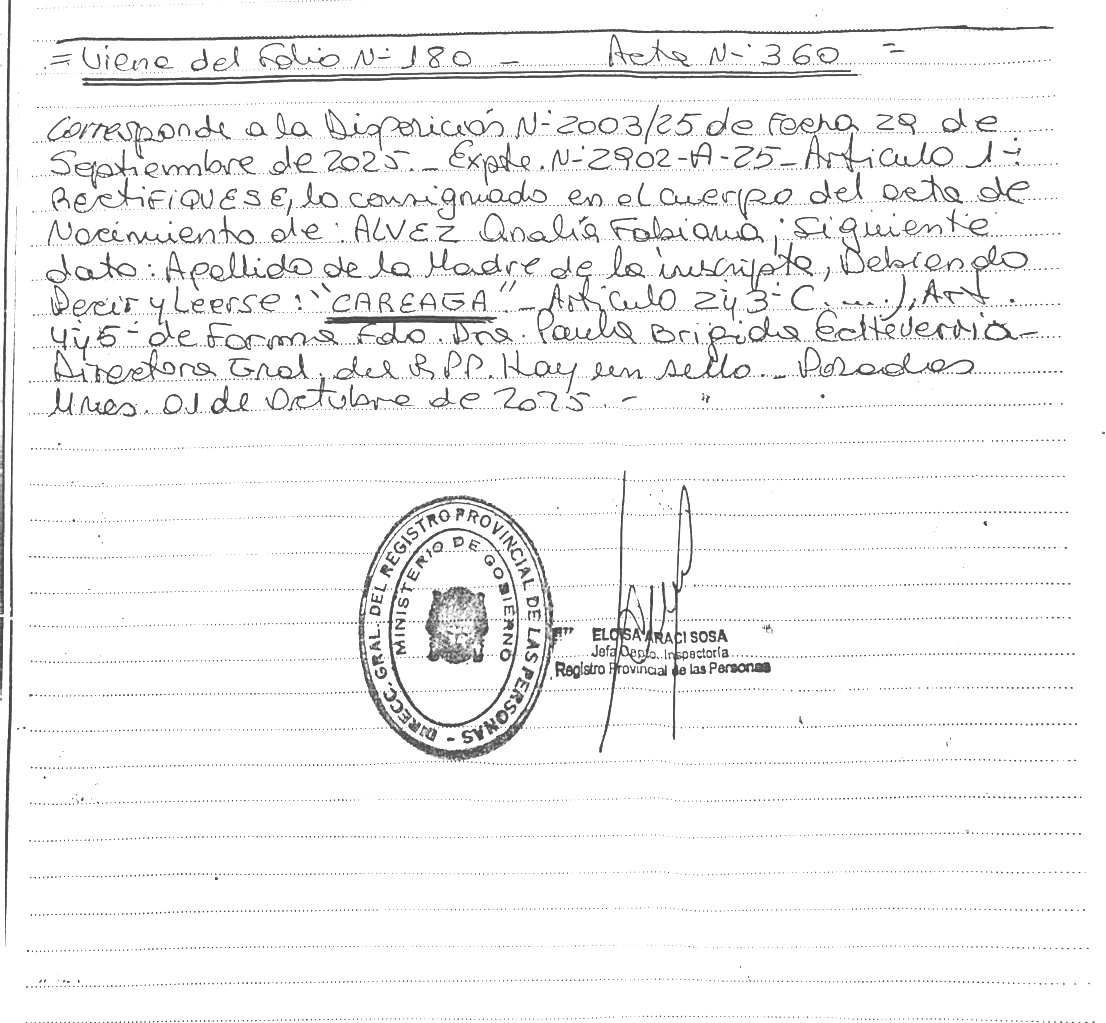 = Viene del Folio N- 180 - Acta N-: 360 =
Corresponde a la Disposición N-2003/25 de Fecha 29 de
Septiembre de 2025.- Expte. N-2902-A-25- Artículo 1-:
RECTIFIQUESE, lo consignado en el cuerpo del acta de
Nacimiento de: ALVEZ Analía Fabiana; Siguiente
dato: Apellido de la Madre de la inscripta, Debiendo
Decir y Leerse: "CAREAGA" - Artículo 2 y 3- (....), Art.
4 y 5- de Forma Fdo. Dra. Paula Brigida Echeverria-
Directora Gral. del R.P.P. Hay un sello.- Posadas
Mnes. 01 de Octubre de 2025.-
DIRECC. GRAL. DEL REGISTRO PROVINCIAL DE LAS PERSONAS -
MINISTERIO DE GOBIERNO
ELOISA ARACI SOSA
Jefa Depto. Inspectoría
Registro Provincial de las Personas